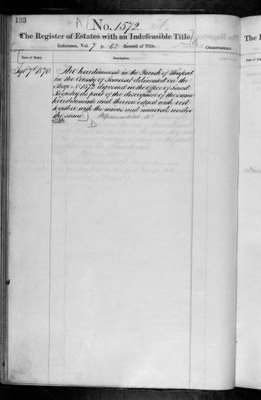 133
No. 1572
The Register of Estates with an Indefeasible Title
Reference, Vol. 7 p. 63 Record of Title.
Observations.
Date of Entry.
Description.
Septr 7th 1870. The hereditaments in the Parish of
in the County of Somerset delineated on the
Map No 1572 deposited in the Office of Land
Registry as part of the description of the same
hereditaments and thereon edged with red
together with the mines and minerals under
the same
The R